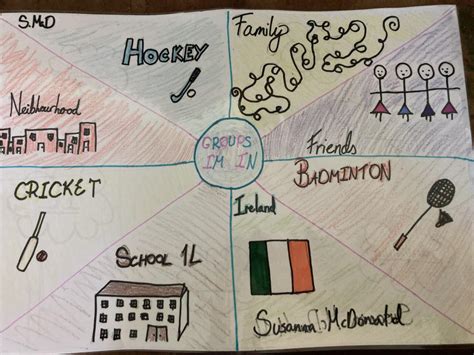 S.M.D
HOCKEY
Family
Neibhourhood
GROUPS
IM IN
Friends
CRICKET
BADMINTON
Ireland
SCHOOL 1L
Susanna